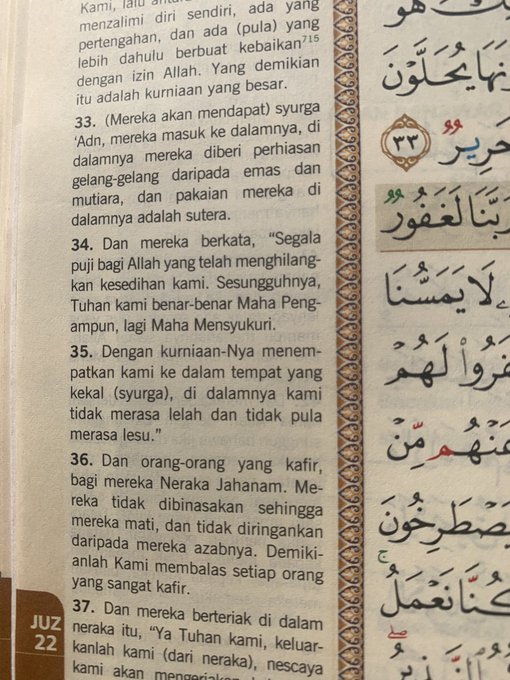 Kami, lalu antara
menzalimi diri sendiri, ada yang
pertengahan, dan ada (pula) yang
lebih dahulu berbuat kebaikan⁷¹⁵
dengan izin Allah. Yang demikian
itu adalah kurniaan yang besar.
33. (Mereka akan mendapat) syurga
‘Adn, mereka masuk ke dalamnya, di
dalamnya mereka diberi perhiasan
gelang-gelang daripada emas dan
mutiara, dan pakaian mereka di
dalamnya adalah sutera.
34. Dan mereka berkata, “Segala
puji bagi Allah yang telah menghilang-
kan kesedihan kami. Sesungguhnya,
Tuhan kami benar-benar Maha Peng-
ampun, lagi Maha Mensyukuri.
35. Dengan kurniaan-Nya menem-
patkan kami ke dalam tempat yang
kekal (syurga), di dalamnya kami
tidak merasa lelah dan tidak pula
merasa lesu.”
36. Dan orang-orang yang kafir,
bagi mereka Neraka Jahanam. Me-
reka tidak dibinasakan sehingga
mereka mati, dan tidak diringankan
daripada mereka azabnya. Demiki-
anlah Kami membalas setiap orang
yang sangat kafir.
37. Dan mereka berteriak di dalam
neraka itu, “Ya Tuhan kami, keluar-
kanlah kami (dari neraka), nescaya
kami akan mengerjakan
JUZ
22
هُوَ
يُحَلَّوْنَ
حَرِيرٌ ٣٣
رَبَّنَا لَغَفُورٌ
لَا يَمَسُّنَا
لَهُمْ
عَنْهُم مِّنْ
يَصْطَرِخُونَ
كُنَّا نَعْمَلُ